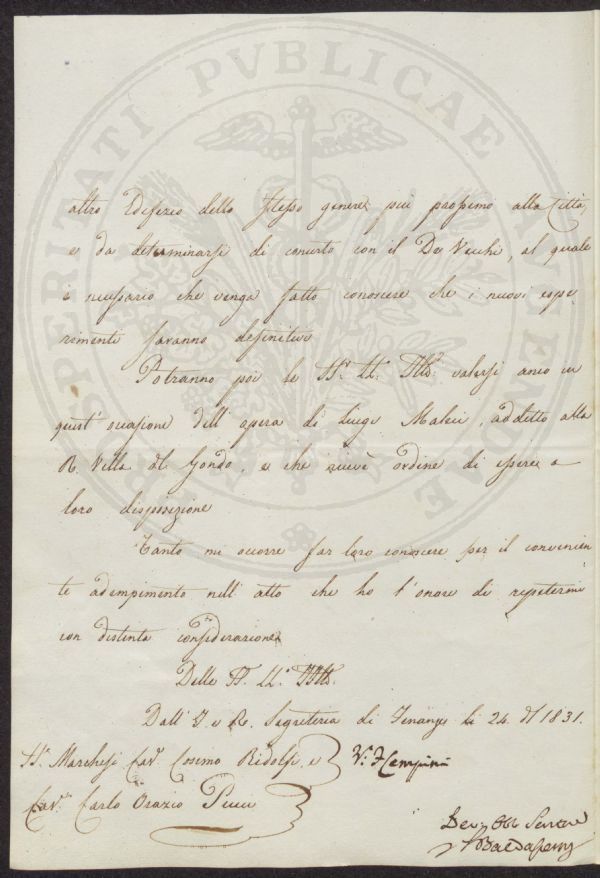 PROSPERITATI PVBLICAE AVGENDAE
altro Edifizio dello stesso genere più prossimo alla Città,
e da determinarsi di concerto con il De Vecchi, al quale
è necessario che venga fatto conoscere che i nuovi espe
rimenti saranno definitivi
Potranno poi le SS.rie LL. Ill.me valersi anco in
quest' occasione dell' opera di Luigi addetto alla
R. Villa del e che riceve ordine di essere a
loro disposizione
Tanto mi occorre far loro conoscere per il convenien
te adempimento nell' atto che ho l'onore di ripetermi
con distinta considerazione
Delle SS. LL. Ill.me
Dall' I. e R. Segreteria di Finanze li 24. 1831.
SS.ri Marchesi Cav. Cosimo Ridolfi e
V. F. Cempini
Cav.re Carlo Orazio Pucci
Dev. Obb. Servre